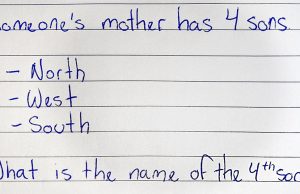 omeone's mother has 4 sons.
- North
- West
- South
What is the name of the 4th soo